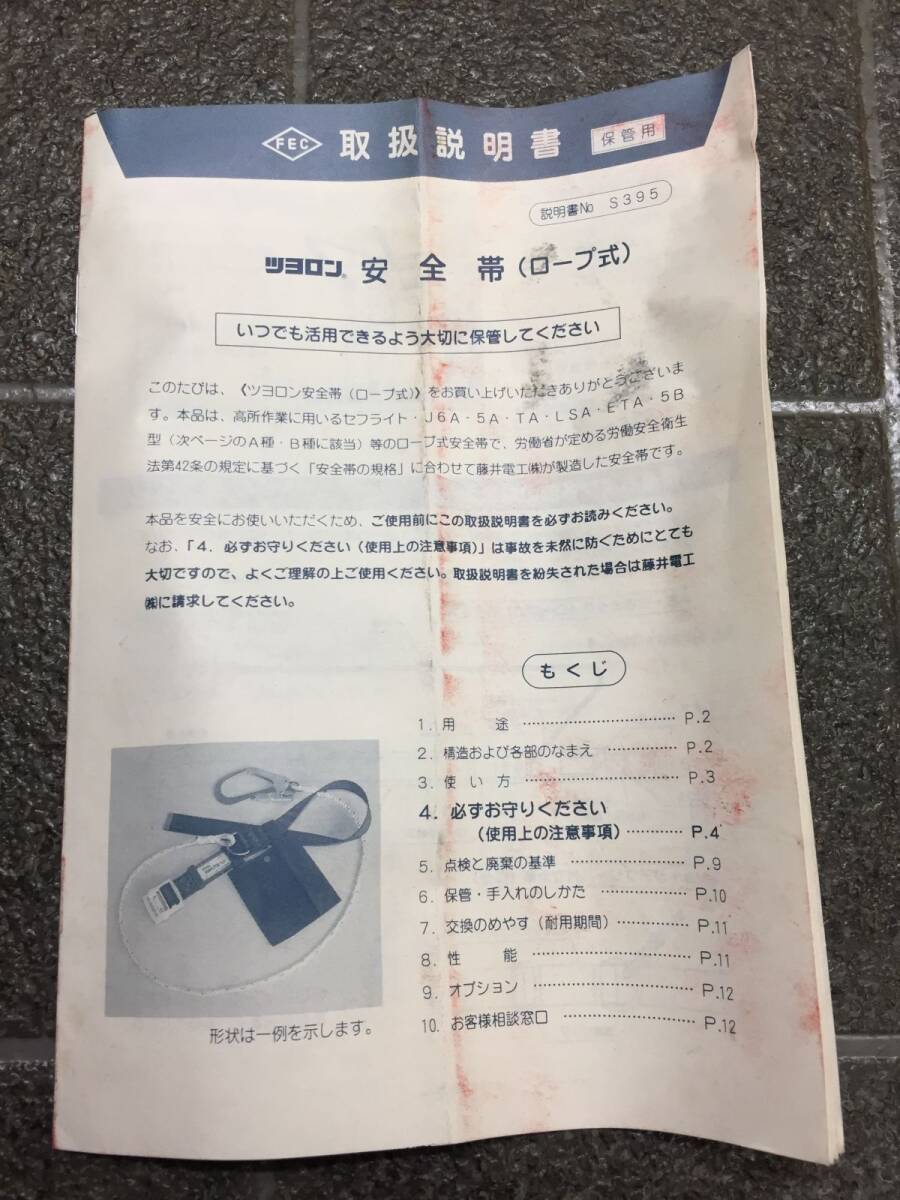 FEC 取扱説明書 保管用
説明書No S395
ツヨロン® 安全帯(ロープ式)
いつでも活用できるよう大切に保管してください
このたびは、《ツヨロン安全帯(ロープ式)》をお買い上げいただきありがとうございま
す。本品は、高所作業に用いるセフライト・J6A・5A・TA・LSA・ETA・5B
型(次ページのA種・B種に該当)等のロープ式安全帯で、労働省が定める労働安全衛生
法第42条の規定に基づく「安全帯の規格」に合わせて藤井電工㈱が製造した安全帯です。
本品を安全にお使いいただくため、ご使用前にこの取扱説明書を必ずお読みください。
なお、「4. 必ずお守りください(使用上の注意事項)」は事故を未然に防ぐためにとても
大切ですので、よくご理解の上ご使用ください。取扱説明書を紛失された場合は藤井電工
㈱に請求してください。
もくじ
1. 用途 …………………………… P.2
2. 構造および各部のなまえ …………… P.2
3. 使い方 …………………………… P.3
4. 必ずお守りください
(使用上の注意事項) ………… P.4
5. 点検と廃棄の基準 …………………… P.9
6. 保管・手入れのしかた ……………… P.10
7. 交換のめやす(耐用期間) …………… P.11
8. 性能 …………………………… P.11
9. オプション …………………………… P.12
10. お客様相談窓口 ……………………… P.12
形状は一例を示します。